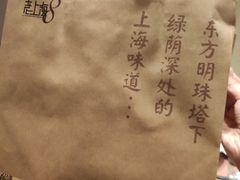 老上海8
东方明珠塔下
绿荫深处的
上海味道...